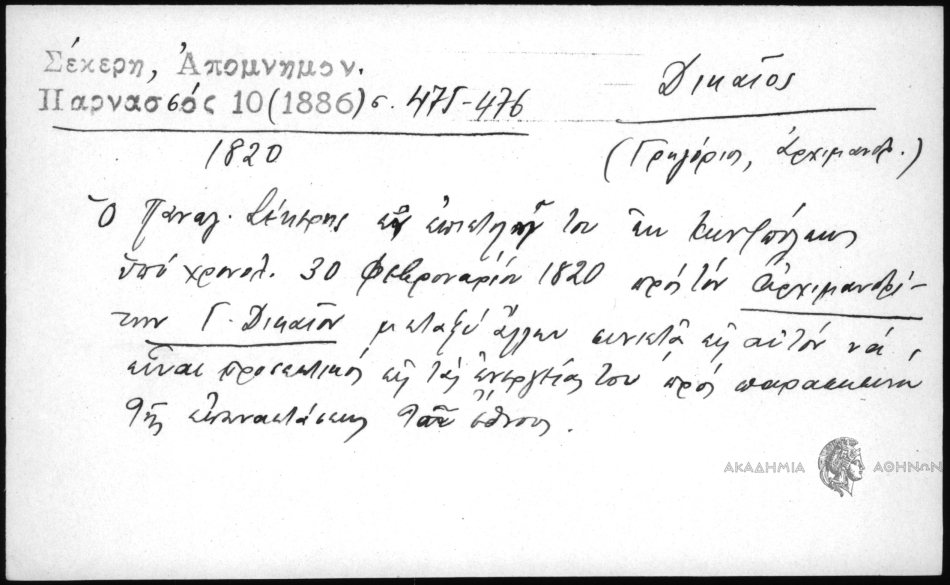 Σέκερη, Ἀπομνημον.
Παρνασσός 10 (1886) σ. 475-476
Δικαῖος
1820
(Γρηγόριος, ἀρχιμανδρ.)
Ὁ Παναγ. Σέκερης ἐν ἐπιστολῇ του ἐκ Κων/πόλεως
ὑπό χρονολ. 30 Φεβρουαρίου 1820 πρός τόν Ἀρχιμανδρί-
την Γ. Δικαῖον μεταξύ ἄλλων συνιστᾶ εἰς αὐτόν νά
εἶναι προσεκτικός εἰς τάς ἐνεργείας του πρός παρασκευήν
τῆς ἐπαναστάσεως τοῦ ἔθνους.
ΑΚΑΔΗΜΙΑ ΑΘΗΝΩΝ